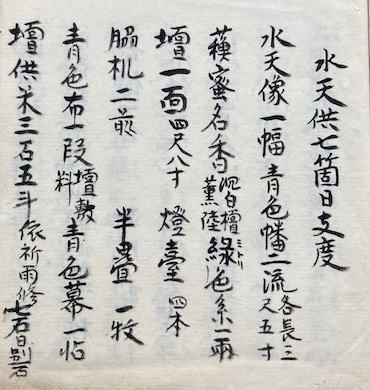 水天供七箇日支度
水天像一幅青色幡二流各長三尺五寸
蘓蜜名香沉白檀薰陸綠ミトリ色糸一兩
壇一面四尺八寸 燈臺四本
脇机二前 半疊一牧
青色布一段壇敷料青色幕一帖
壇供米三石五斗依祈雨修七ケ日別